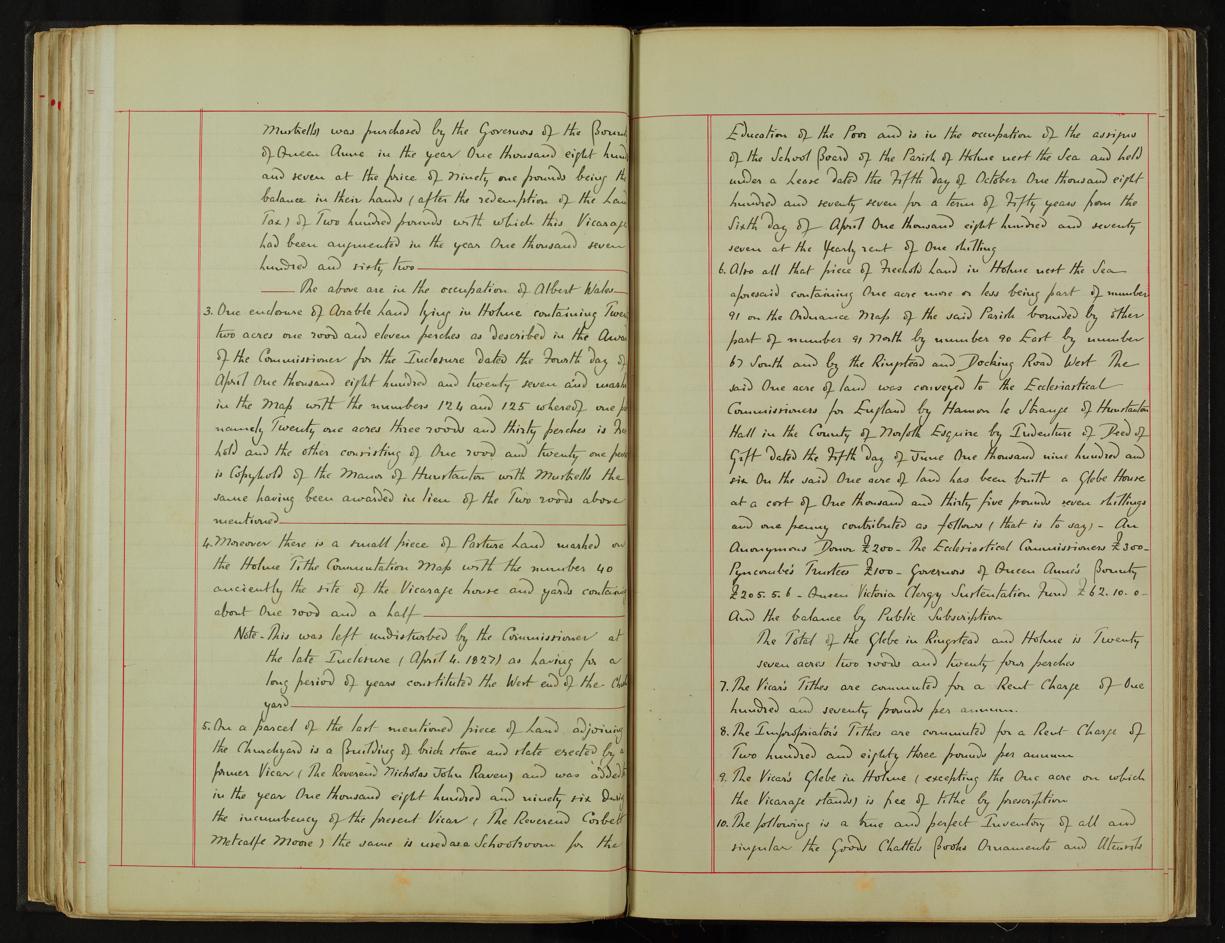 Murtrells) was purchased by the Governors of the Boun
of Queen Anne in the year One thousand eight hund
and seven at the price of ninety one pounds being th
balance in their hands (after the redemption of the Lan
Tax) of Two hundred pounds with which this Vicarage
had been augmented in the year One thousand seven
hundred and sixty two
The above are in the occupation of Albert Wales
3. One enclosure of Arable Land lying in Holme containing Twen
two acres one rood and eleven perches as described in the Awar
of the Commissioner for the Inclosure dated the Fourth day of
April One thousand eight hundred and twenty seven and mark
in the Map with the numbers 124 and 125 whereof one p
namely Twenty one acres three roods and thirty perches is Fre
hold and the other consisting of One rood and twenty one perc
is Copyhold of the Manor of Hunstanton with Murtrells the
same having been awarded in lieu of the Two roods above
mentioned
4. Moreover there is a small piece of Pasture Land marked on
the Holme Tithe Commutation Map with the number 40
anciently the site of the Vicarage house and yards containing
about One rood and a half
Note - This was left undisturbed by the Commissioner at
the late Inclosure (April 4. 1827) as having for a
long period of years constituted the West end of the Chur
yard
5. On a parcel of the last mentioned piece of Land adjoining
the Churchyard is a Building of brick stone and slate erected by a
former Vicar (The Reverend Nicholas John Raven) and was added t
in the year One thousand eight hundred and ninety six during
the incumbency of the present Vicar (The Reverend Corbett
Metcalfe Moore) the same is used as a Schoolroom for the
Education of the Poor and is in the occupation of the assigns
of the School Board of the Parish of Holme next the Sea and held
under a Lease dated the Fifth day of October One thousand eight
hundred and seventy seven for a term of Fifty years from the
Sixth day of April One thousand eight hundred and seventy
seven at the Yearly rent of One shilling
6. Also all that piece of Freehold Land in Holme next the Sea
aforesaid containing One acre more or less being part of number
91 on the Ordnance Map of the said Parish bounded by other
part of number 91 North by number 90 East by number
67 South and by the Ringstead and Docking Road West The
said One acre of land was conveyed to the Ecclesiastical
Commissioners for England by Hamon le Strange of Hunstanton
Hall in the County of Norfolk Esquire by Indenture of Deed of
Gift dated the Fifth day of June One thousand nine hundred and
six On the said One acre of land has been built a Glebe House
at a cost of One thousand and thirty five pounds seven shillings
and one penny contributed as follows (that is to say) - An
Anonymous Donor £200 - The Ecclesiastical Commissioners £300 -
Pyncombe's Trustees £100 - Governors of Queen Anne's Bounty
£205.5.6 - Queen Victoria Clergy Sustentation Fund £62.10.0 -
And the balance by Public Subscription
The Total of the Glebe in Ringstead and Holme is Twenty
seven acres two roods and twenty four perches
7. The Vicar's Tithes are commuted for a Rent Charge of One
hundred and seventy pounds per annum.
8. The Impropriator's Tithes are commuted for a Rent Charge of
Two hundred and eighty three pounds per annum
9. The Vicar's Glebe in Holme (excepting the One acre on which
the Vicarage stands) is free of tithe by prescription
10. The following is a true and perfect Inventory of all and
singular the Goods Chattels Books Ornaments and Utensils